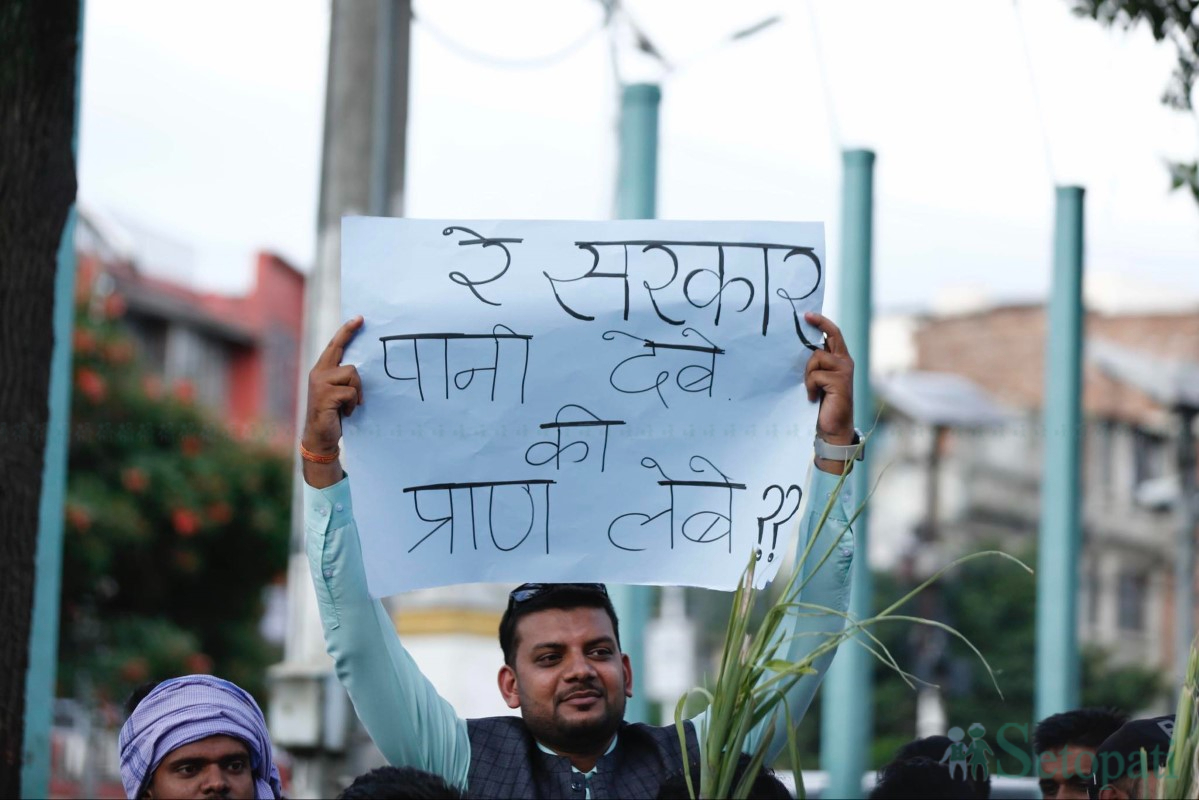 रे सरकार
पानी देबे
की
प्राण लेबे??
Setopati